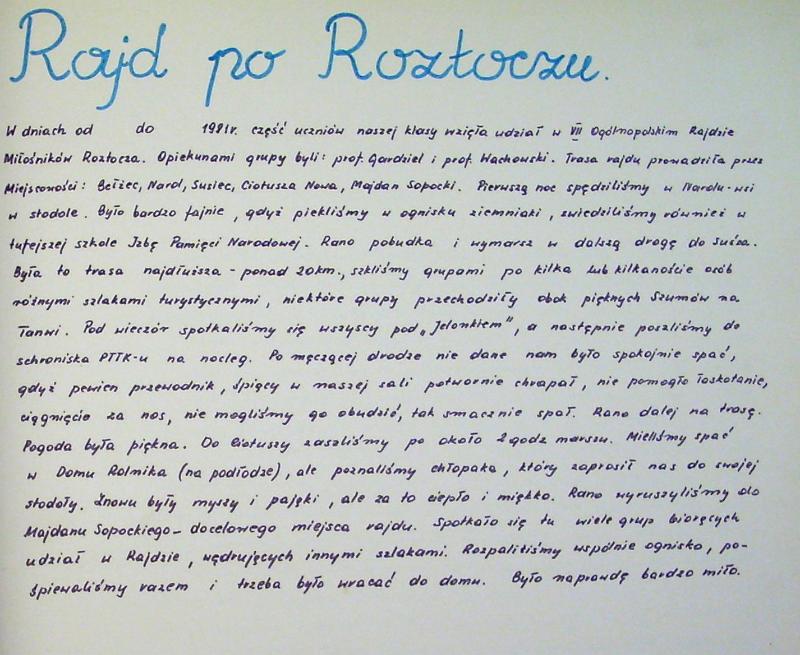 Rajd po Roztoczu.
W dniach od do 1981r. część uczniów naszej klasy wzięła udział w VII Ogólnopolskim Rajdzie
Miłośników Roztocza. Opiekunami grupy byli: prof. Gardziel i prof. Wachowski. Trasa rajdu prowadziła przez
Miejscowości: Bełżec, Narol, Susiec, Ciotusza Nowa, Majdan Sopocki. Pierwszą noc spędziliśmy w Narolu-wsi
w stodole. Było bardzo fajnie, gdyż piekliśmy w ognisku ziemniaki, zwiedziliśmy również w
tutejszej szkole Izbę Pamięci Narodowej. Rano pobudka i wymarsz w dalszą drogę do Suśca.
Była to trasa najdłuższa - ponad 20km., szliśmy grupami po kilka lub kilkanaście osób
różnymi szlakami turystycznymi, niektóre grupy przechodziły obok pięknych Szumów na
Tanwi. Pod wieczór spotkaliśmy się wszyscy pod „Jelonkiem", a następnie poszliśmy do
schroniska PTTK-u na nocleg. Po męczącej drodze nie dane nam było spokojnie spać,
gdyż pewien przewodnik, śpiący w naszej sali potwornie chrapał, nie pomogło łaskotanie,
ciągnięcie za nos, nie mogliśmy go obudzić, tak smacznie spał. Rano dalej na trasę.
Pogoda była piękna. Do Ciotuszy zaszliśmy po około 2 godz marszu. Mieliśmy spać
w Domu Rolnika (na podłodze), ale poznaliśmy chłopaka, który zaprosił nas do swojej
stodoły. Znowu były myszy i pająki, ale za to ciepło i miękko. Rano wyruszyliśmy do
Majdanu Sopockiego - docelowego miejsca rajdu. Spotkało się tu wiele grup biorących
udział w Rajdzie, wędrujących innymi szlakami. Rozpaliliśmy wspólnie ognisko, po-
śpiewaliśmy razem i trzeba było wracać do domu. Było naprawdę bardzo miło.